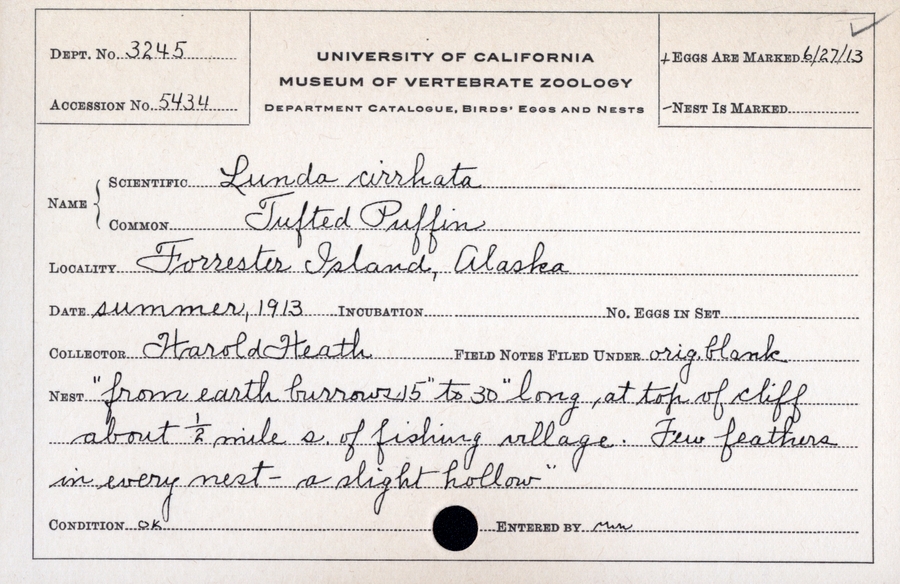 Dept. No. 3245
Accession No. 5434
UNIVERSITY OF CALIFORNIA
MUSEUM OF VERTEBRATE ZOOLOGY
Department Catalogue, Birds' Eggs and Nests
+Eggs Are Marked 6/27/13
-Nest Is Marked
Name
Scientific Lunda cirrhata
Common Tufted Puffin
Locality Forrester Island, Alaska
Date summer, 1913 Incubation No. Eggs in Set
Collector Harold Heath Field Notes Filed Under orig. blank
Nest "from earth burrows 15" to 30" long, at top of cliff
about 1/2 mile s. of fishing village. Few feathers
in every nest - a slight hollow"
Condition OK Entered by